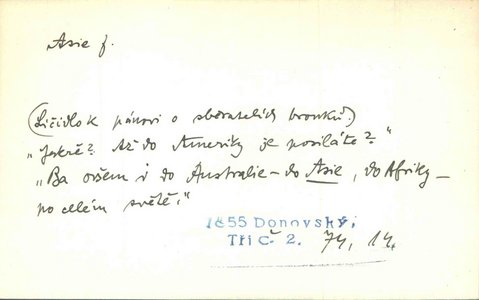 Asie f.
(Ličidlo k pánovi o sběratelích brouků)
„Jakže? Až do Ameriky je posíláte?"
„Ba ovšem i do Australie – do Asie, do Afriky –
po celém světě."
1855 Donovský,
Tři č. 2. 74, 14.